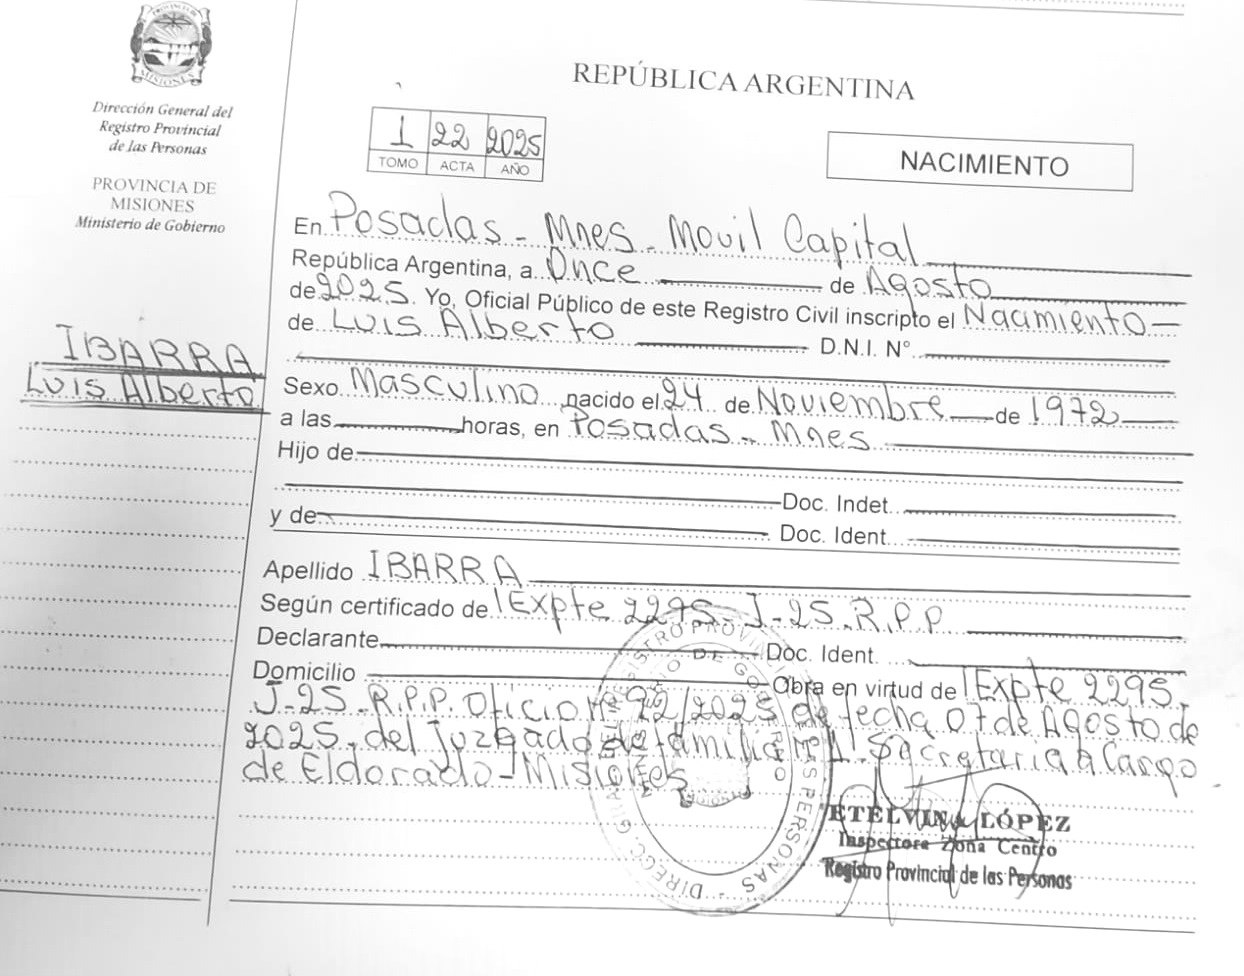 PROVINCIA DE
MISIONES
Dirección General del
Registro Provincial
de las Personas
PROVINCIA DE
MISIONES
Ministerio de Gobierno
IBARRA
Luis Alberto
REPÚBLICA ARGENTINA
1 22 2025
TOMO ACTA AÑO
NACIMIENTO
En Posadas - Mnes - Movil Capital
República Argentina, a Once de Agosto
de 2025. Yo, Oficial Público de este Registro Civil inscripto el Nacimiento
de Luis Alberto D.N.I. N°
Sexo Masculino nacido el 24 de Noviembre de 1972
a las horas, en Posadas - Mnes
Hijo de
Doc. Indet.
y de Doc. Ident.
Apellido IBARRA
Según certificado de Expte 2295 J-25.R.P.P
Declarante Doc. Ident.
Domicilio Obra en virtud de Expte 2295.
J-25.R.P.P. Oficio Nº 92/2025 de fecha 07 de Agosto de
2025, del Juzgado de familia Nº 1. Secretaria a Cargo
de Eldorado - Misiones
ETELVINA LÓPEZ
Inspectora Zona Centro
Registro Provincial de las Personas